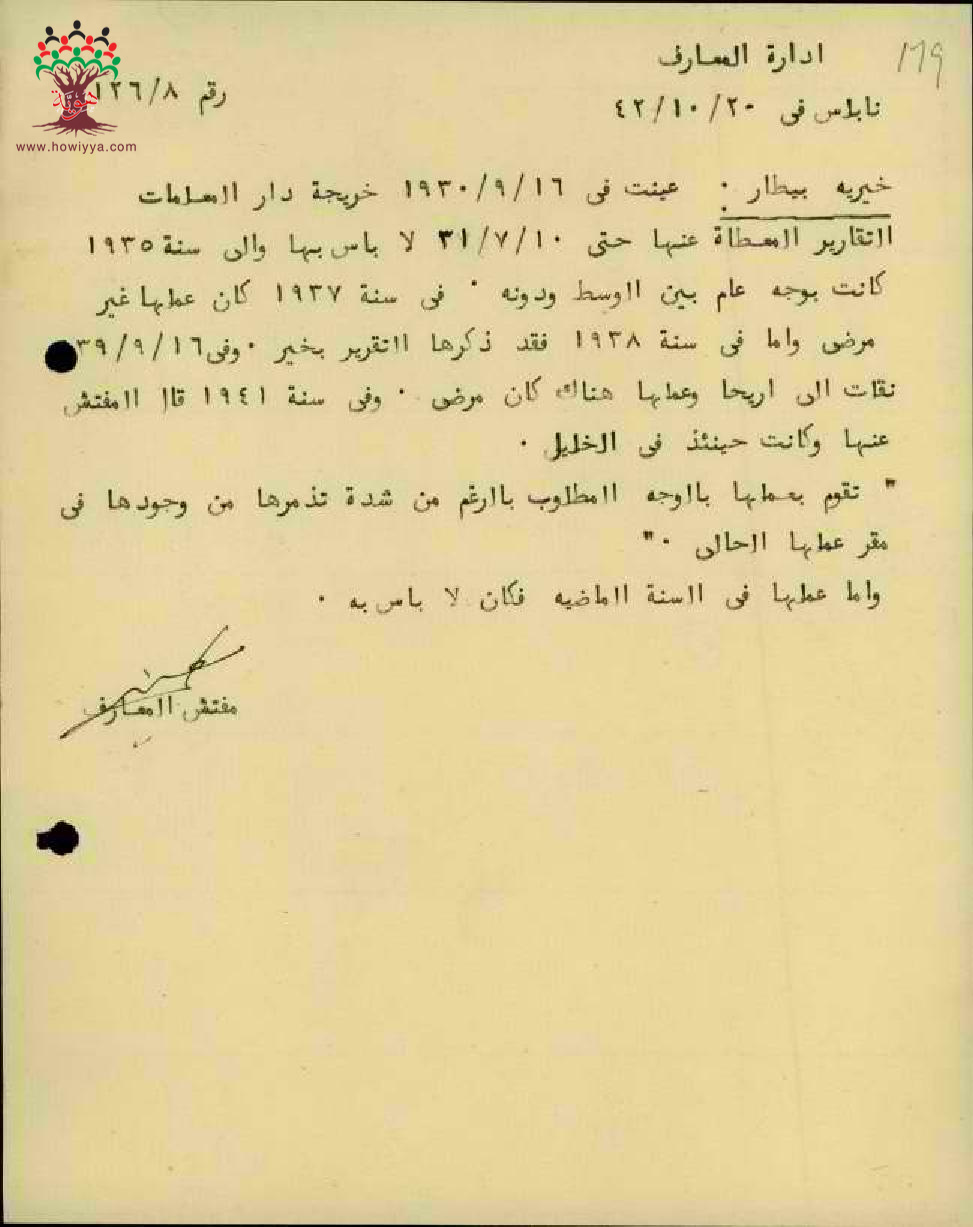 ادارة المعارف
179
نابلس في ٢٠/١٠/٤٢
رقم ١٢٦/٨
هوية
www.howiyya.com
خيريه بيطار : عينت في ١٦/٩/١٩٣٠ خريجة دار المعلمات
التقارير المعطاة عنها حتى ١٠/٧/٣١ لا باس بها والى سنة ١٩٣٥
كانت بوجه عام بين الوسط ودونه ٠ في سنة ١٩٣٧ كان عملها غير
مرضى واما في سنة ١٩٣٨ فقد ذكرها التقرير بخير ٠ وفي ١٦/٩/٣٩
نقلت الى اريحا وعملها هناك كان مرضى ٠ وفي سنة ١٩٤١ قال المفتش
عنها وكانت حينئذ في الخليل ٠
" تقوم بعملها بالوجه المطلوب بالرغم من شدة تذمرها من وجودها في
مقر عملها الحالى ٠"
واما عملها في السنة الماضيه فكان لا باس به ٠
مفتش المعارف